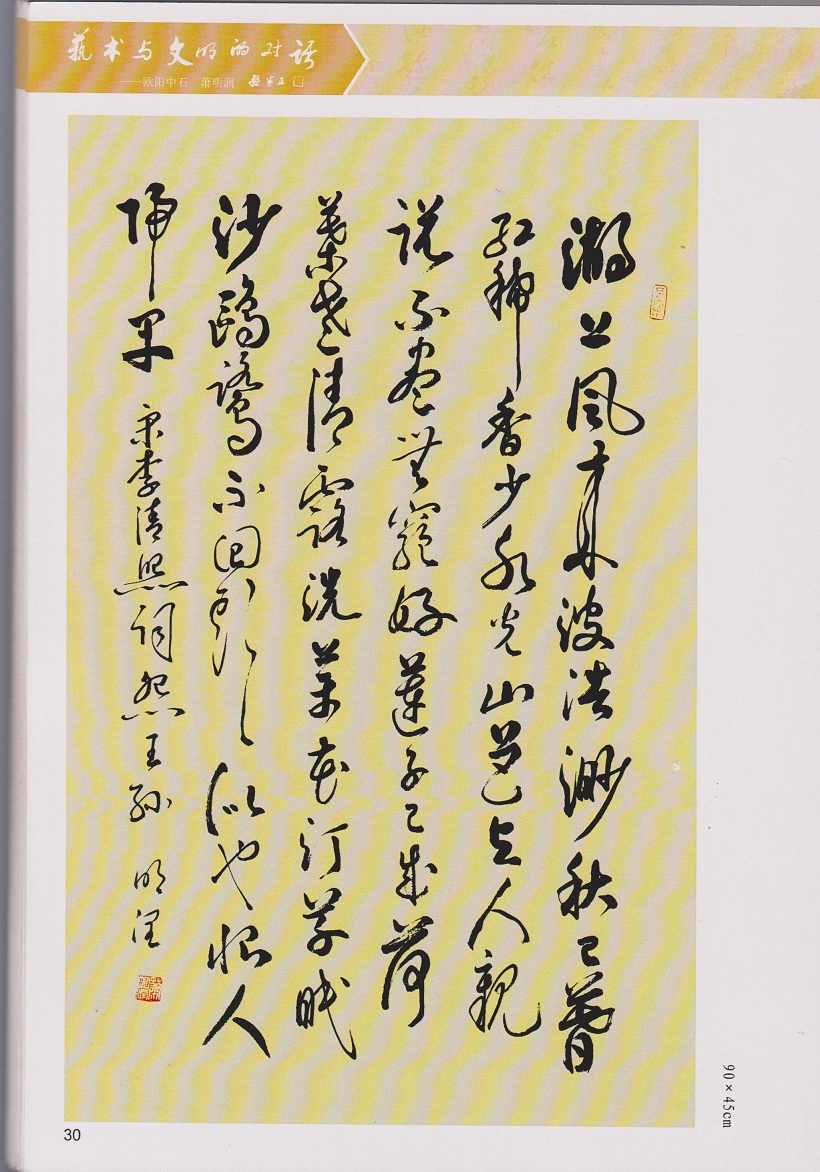 藝术与文明的对话
——欧阳中石 萧明润
湖上風来波浩渺秋已暮
红稀香少水光山色与人親
说不尽無窮好蓮子已成荷
葉老清露洗苹花汀草眠
沙鷗鹭不回头似也恨人
歸早 宋李清照词怨王孙 明润
90×45cm
30